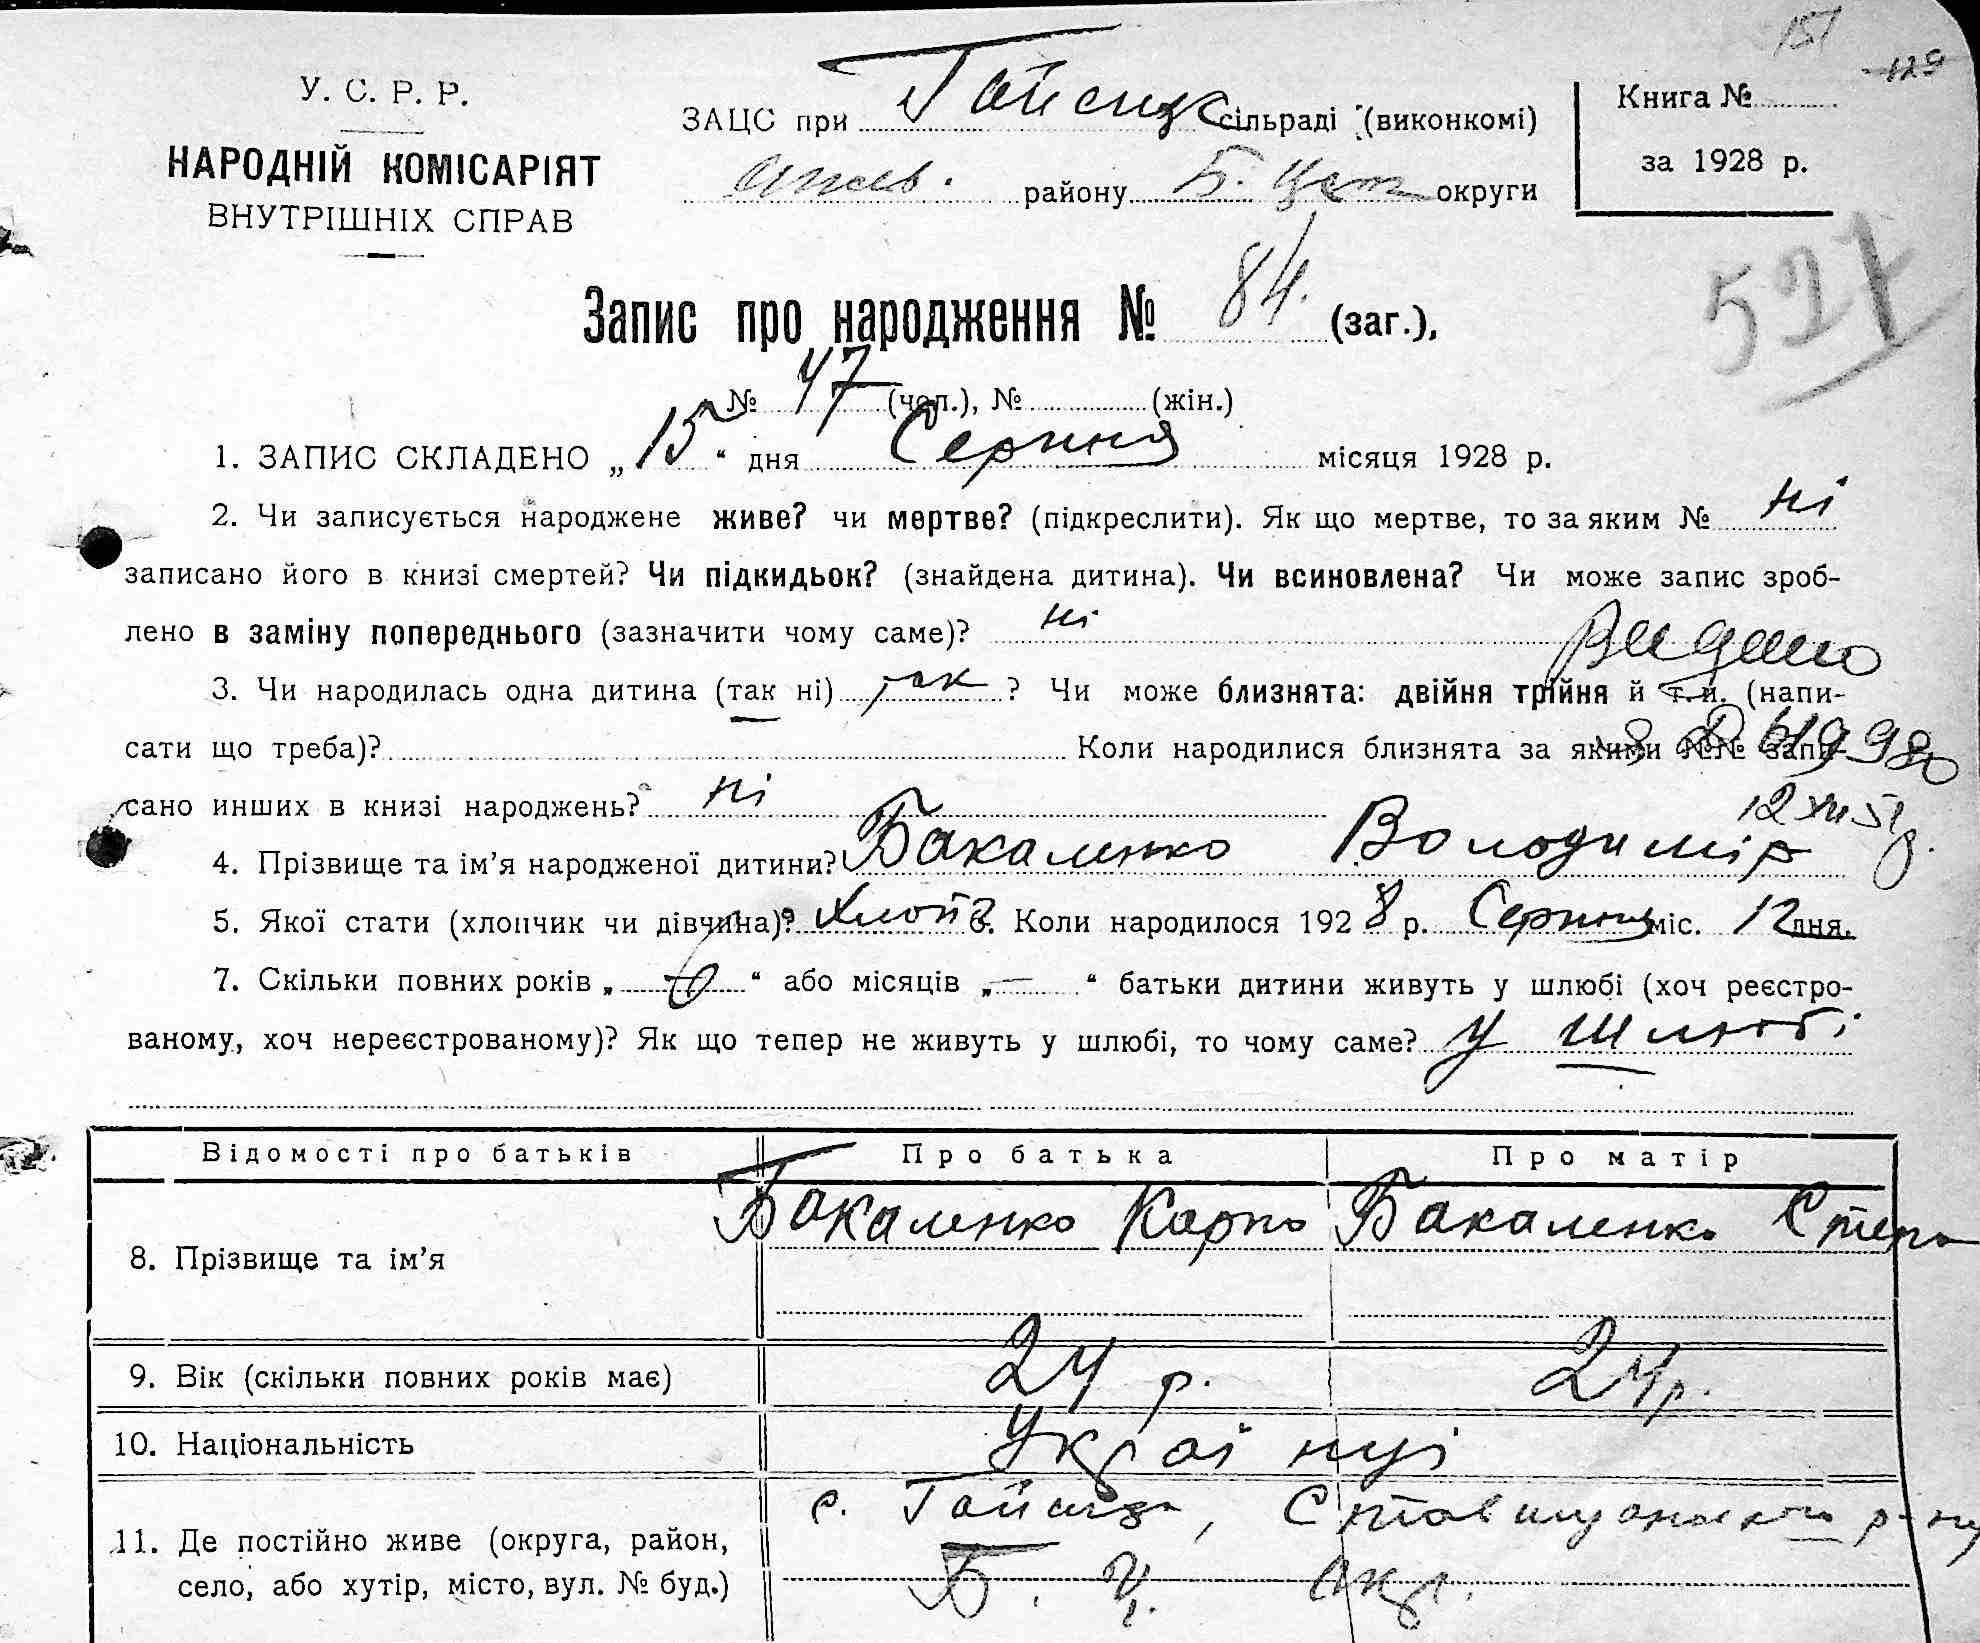 151
129
У. С. Р. Р.
НАРОДНІЙ КОМІСАРІЯТ
ВНУТРІШНІХ СПРАВ
ЗАЦС при Гайсицк сільраді (виконкомі)
району Б. Церк округи
Книга №
за 1928 р.
527
Запис про народження № 84. (заг.),
№ 47 (чол.), № (жін.)
1. ЗАПИС СКЛАДЕНО „15“ дня Серпня місяця 1928 р.
2. Чи записується народжене живе? чи мертве? (підкреслити). Як що мертве, то за яким № ні
записано його в книзі смертей? Чи підкидьок? (знайдена дитина). Чи всиновлена? Чи може запис зроб-
лено в заміну попереднього (зазначити чому саме)? ні
Видано
3. Чи народилась одна дитина (так ні) так ? Чи може близнята: двійня трійня й т. и. (напи-
сати що треба)? Коли народилися близнята за якими №№ запи-
сано инших в книзі народжень? ні
12 XII 51 р.
4. Прізвище та ім’я народженої дитини? Бакаленко Володимір
5. Якої стати (хлопчик чи дівчина)? Хлопч. Коли народилося 1928 р. Серпня міс. 12 дня.
7. Скільки повних років „6“ або місяців „—“ батьки дитини живуть у шлюбі (хоч реєстро-
ваному, хоч нереєстрованому)? Як що тепер не живуть у шлюбі, то чому саме? У шлюбі
Відомості про батьків Про батька Про матір
8. Прізвище та ім’я Бакаленко Карпо Бакаленко Степа
9. Вік (скільки повних років має) 24 р. 24 р.
10. Національність Українці
11. Де постійно живе (округа, район, с. Гайсиця, Ставищанського р-ну
село, або хутір, місто, вул. № буд.) Б. Ц. окр.